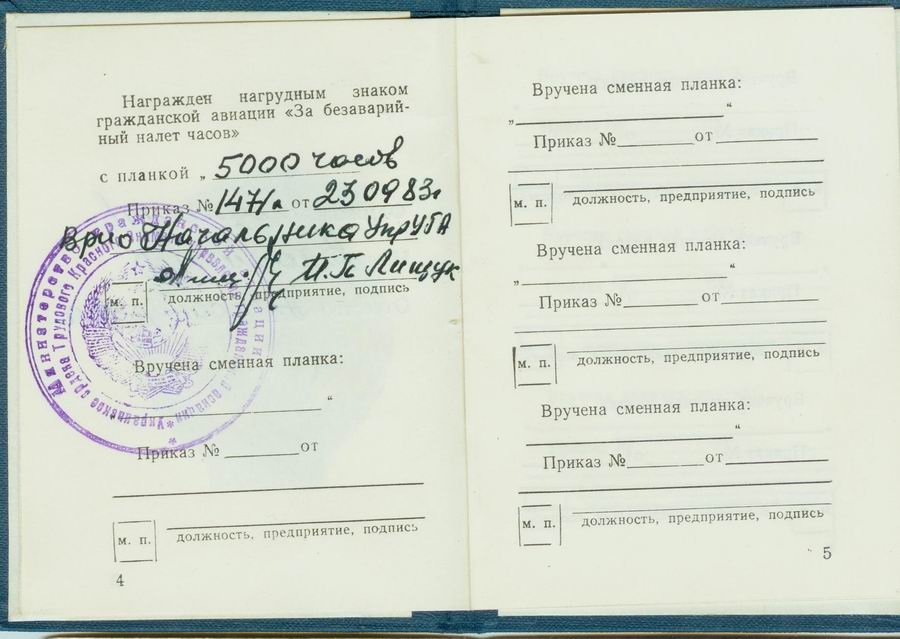 Награжден нагрудным знаком
гражданской авиации «За безаварий-
ный налет часов»
с планкой „ 5000 часов
Приказ № 147/л от 23 09 83г
Врио Начальника УпрУГА
П.П. Лищук
м. п.
должность, предприятие, подпись
Министерство гражданской авиации
Украинское ордена Трудового Красного Знамени управление гражданской авиации
Вручена сменная планка:
“
Приказ № от
м. п.
должность, предприятие, подпись
4
Вручена сменная планка:
„ “
Приказ № от
м. п.
должность, предприятие, подпись
Вручена сменная планка:
„ “
Приказ № от
м. п.
должность, предприятие, подпись
Вручена сменная планка:
“
Приказ № от
м. п.
должность, предприятие, подпись
5